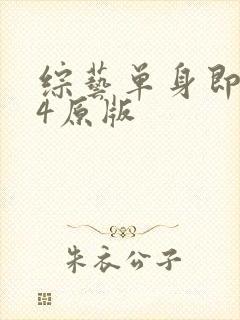 综藝单身即
4原版
朱衣公子